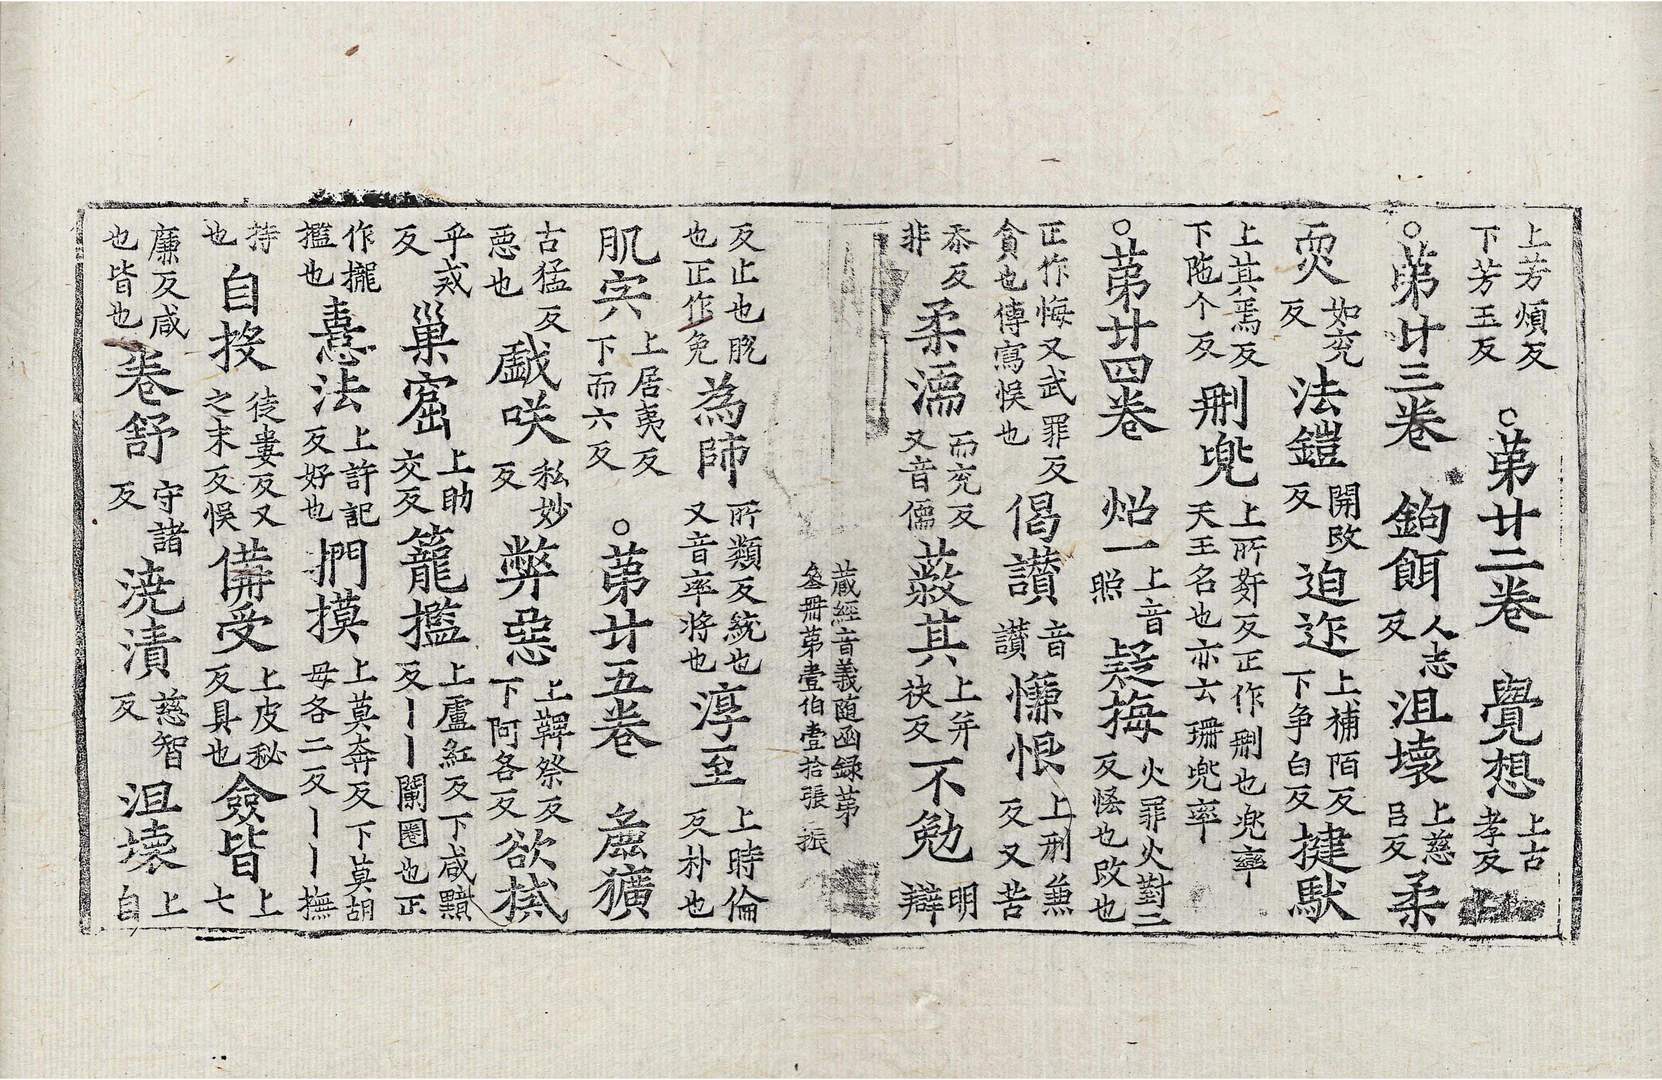 上芳煩反下芳玉反 ○第廿二卷 覺想上古孝反
○第廿三卷 鉤餌人志反 沮壞上慈吕反 柔
耎如兖反 法鎧開改反 迫迮上補陌反下争白反 揵馱
上其焉反下陁个反 刪兠上所姧反正作刪也兠率天王名也亦云珊兠率
○第廿四卷 炤一上音照 疑悔火罪火對二反恡也改也
正作悔又武罪反貪也傳寫悮也 偈讃音讃 慊恨上刑兼反又苦
忝反非 柔濡而兖反又音儒 蔽其上并袂反 不勉明辯
藏經音義随函録第
叁冊第壹伯壹拾張 振
反止也脱也正作免 為師所類反統也又音率將也 淳至上時倫反朴也
肌宍上居夷反下而六反 ○第廿五卷 麁獷
古猛反惡也 戱咲私妙反 弊惡上鞞祭反下阿各反 欲楲
乎戒反 巢窟上助交反 籠檻上盧紅反下咸黤反丨丨闌圈也正
作櫳檻也 憙法上許記反好也 捫摸上莫奔反下莫胡毋各二反丨丨撫
持也 自投徒婁反又之末反悮 備受上皮秘反具也 僉皆上七
廉反咸也皆也 卷舒守諸反 澆漬慈智反 沮壞上自